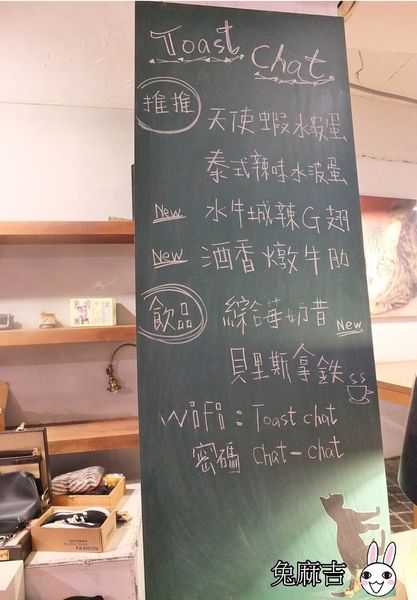 Toast
Chat
推推
天使蝦水波蛋
泰式辣味水波蛋
New 水牛城辣G翅
New 酒香燉牛肋
飲品
綜莓奶昔 New
貝里斯拿鉄
WiFi : Toast chat
密碼 Chat-chat
FASHION
兔麻吉